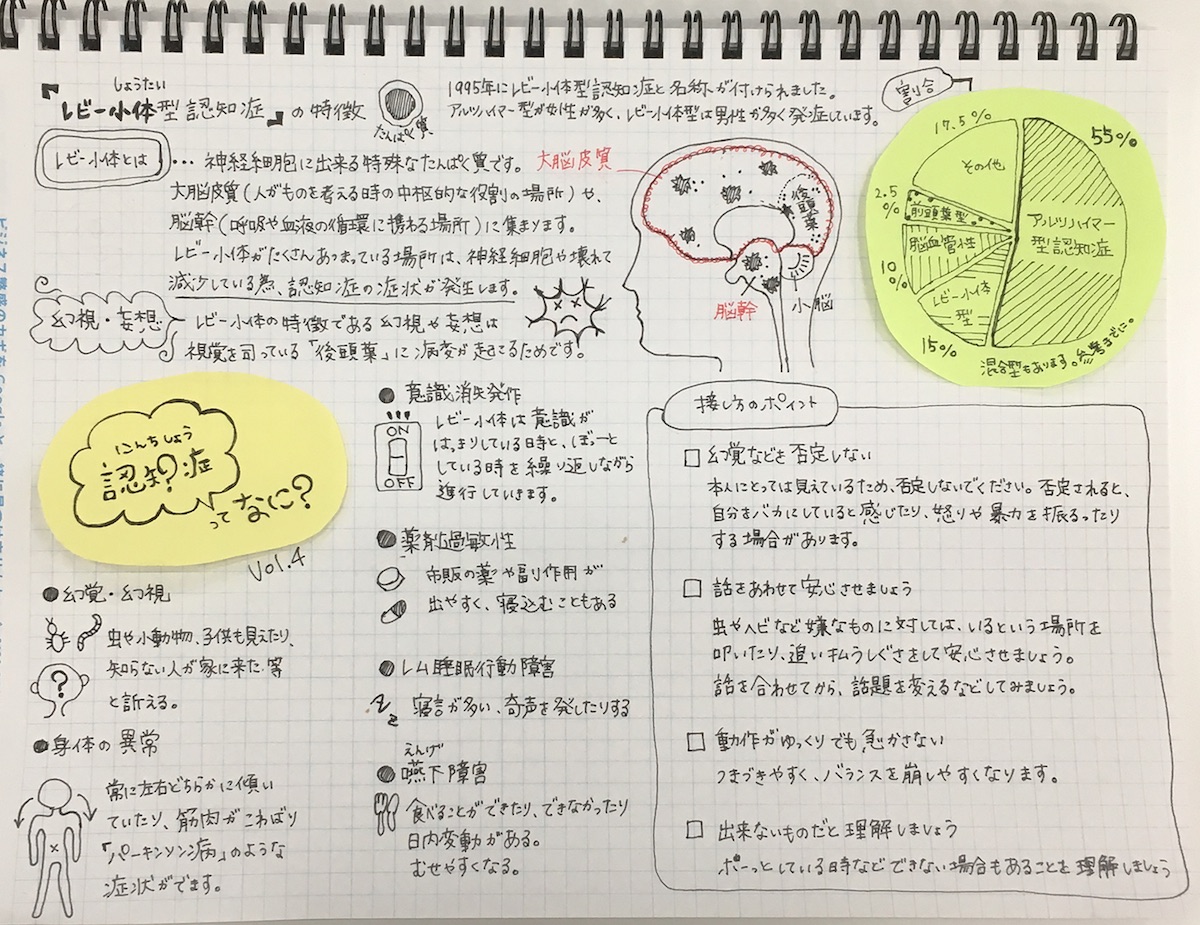 しょうたい
『レビー小体型認知症』の特徴
たんぱく質
1995年にレビー小体型認知症と名称が付けられました。
アルツハイマー型が女性が多く、レビー小体型は男性が多く発症しています。
割合
55%
アルツハイマー
型認知症
17.5%
その他
2.5
%
前頭葉型
脳血管性
10
%
レビー小体
型
15%
混合型もあります。参考までに。
レビー小体とは
…神経細胞に出来る特殊なたんぱく質です。
大脳皮質(人がものを考える時の中枢的な役割の場所)や、
脳幹(呼吸や血液の循環に携わる場所)に集まります。
レビー小体がたくさんあつまっている場所は、神経細胞や壊れて
減少している為、認知症の症状が発生します。
大脳皮質
後頭葉
脳幹
小脳
幻視・妄想
レビー小体の特徴である幻視や妄想は
視覚を司っている「後頭葉」に病変が起こるためです。
にんちしょう
認知?症
ってなに?
Vol.4
●幻覚・幻視
虫や小動物、子供も見えたり、
知らない人が家に来た等
と訴える。
?
●身体の異常
常に左右どちらかに傾い
ていたり、筋肉がこわばり
「パーキンソン病」のような
症状がでます。
●意識消失発作
ON
OFF
レビー小体は意識が
はっきりしている時と、ぼーっと
している時を繰り返しながら
進行していきます。
●薬剤過敏性
市販の薬や副作用が
出やすく、寝込むこともある
●レム睡眠行動障害
Zz
寝言が多い、奇声を発したりする
えんげ
●嚥下障害
食べることができたり、できなかったり
日内変動がある。
むせやすくなる。
接し方のポイント
□ 幻覚などを否定しない
本人にとっては見えているため、否定しないでください。否定されると、
自分をバカにしていると感じたり、怒りや暴力を振るったり
する場合があります。
□ 話をあわせて安心させましょう
虫やヘビなど嫌なものに対しては、いるという場所を
叩いたり、追い払うしぐさをして安心させましょう。
話を合わせてから、話題を変えるなどしてみましょう。
□ 動作がゆっくりでも急かさない
つまづきやすく、バランスを崩しやすくなります。
□ 出来ないものだと理解しましょう
ボーっとしている時などできない場合もあることを理解しましょう